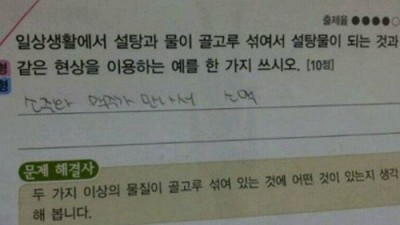 출제율 ●●●●○
일상생활에서 설탕과 물이 골고루 섞여서 설탕물이 되는 것과
같은 현상을 이용하는 예를 한 가지 쓰시오. [10점]
형
형
소주와 맥주가 만나서 소맥
문제 해결사
두 가지 이상의 물질이 골고루 섞여 있는 것에 어떤 것이 있는지 생각
해 봅니다.